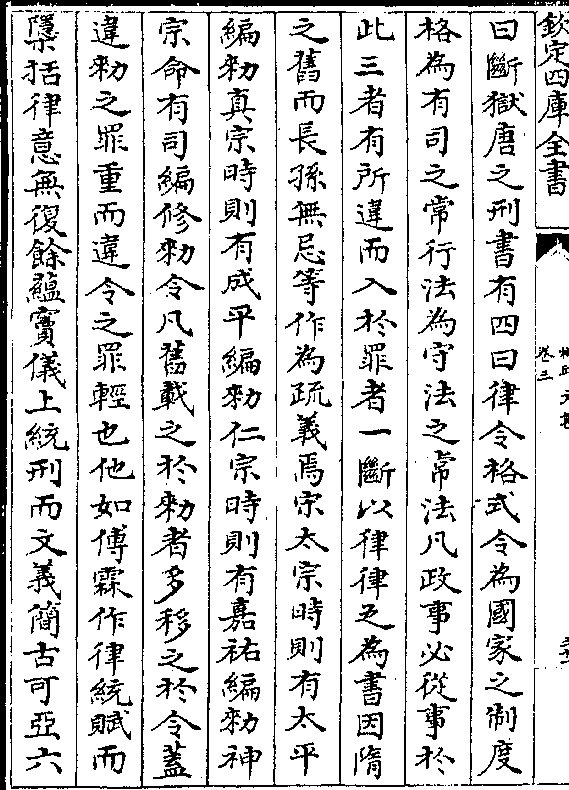 欽定四庫全書
卷三
曰斷獄唐之刑書有四曰律令格式令為國家之制度
格為有司之常行法為守法之常法凡政事必從事於
此三者有所違而入於罪者一斷以律律之為書因隋
之舊而長孫無忌等作為疏義焉宋太宗時則有太平
編勅真宗時則有咸平編勅仁宗時則有嘉祐編勅神
宗命有司編修勅令凡舊載之於勅者多移之於令蓋
違勅之罪重而違令之罪輕也他如傅霖作律統賦而
檃括律意無復餘蘊竇儀上統刑而文義簡古可亞六